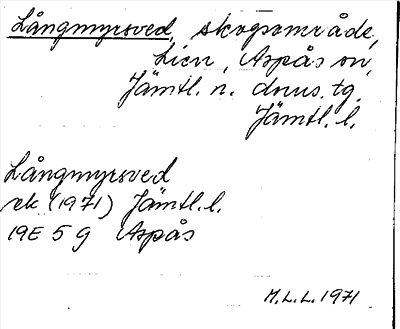 Långmyrsved, skogsområde,
Lien, Aspås sn,
Jämtl. n. dms. tg.
Jämtl. l.
Långmyrsved
ek (1971) Jämtl. l.
19E 5 g Aspås
M.L.L. 1971